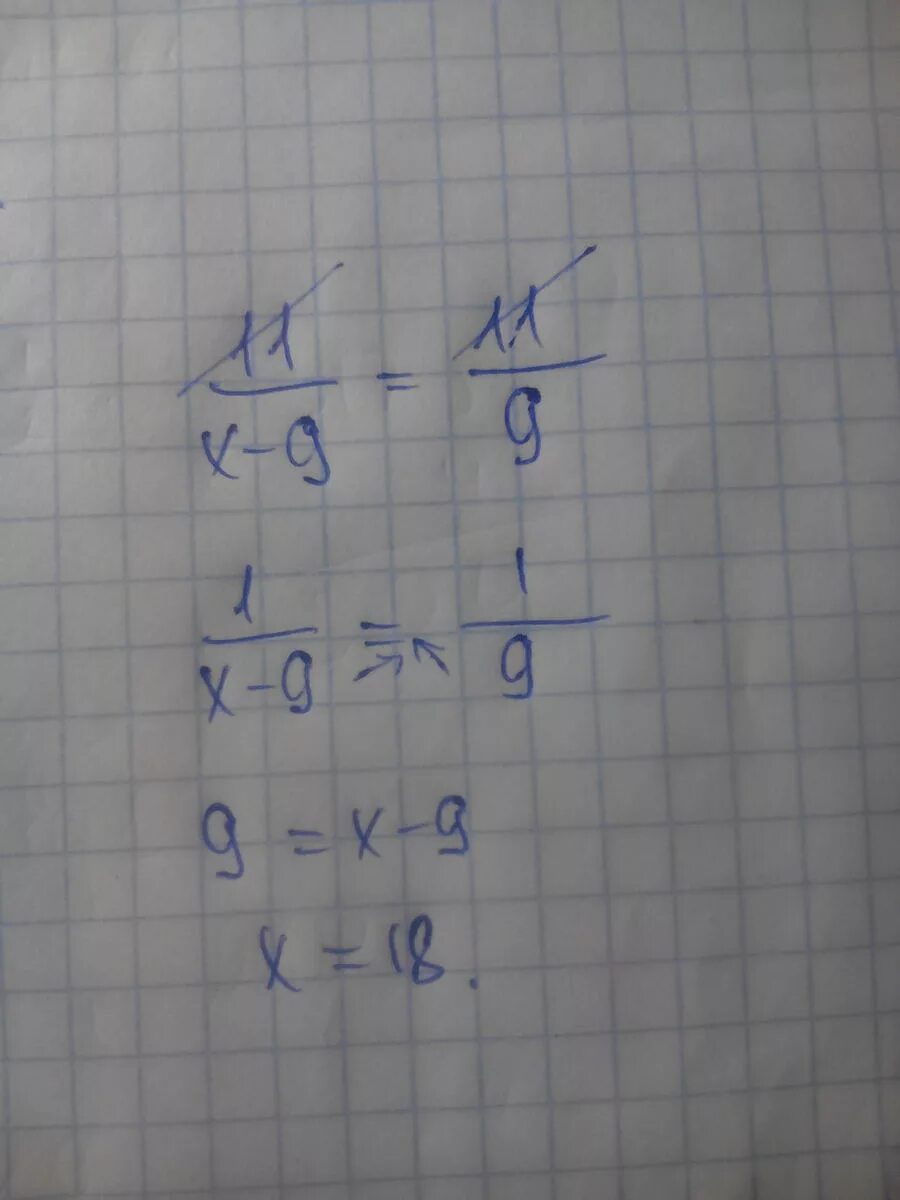 11/(x-9) = 11/9
1/(x-9) = 1/9
9 = x-9
x = 18.